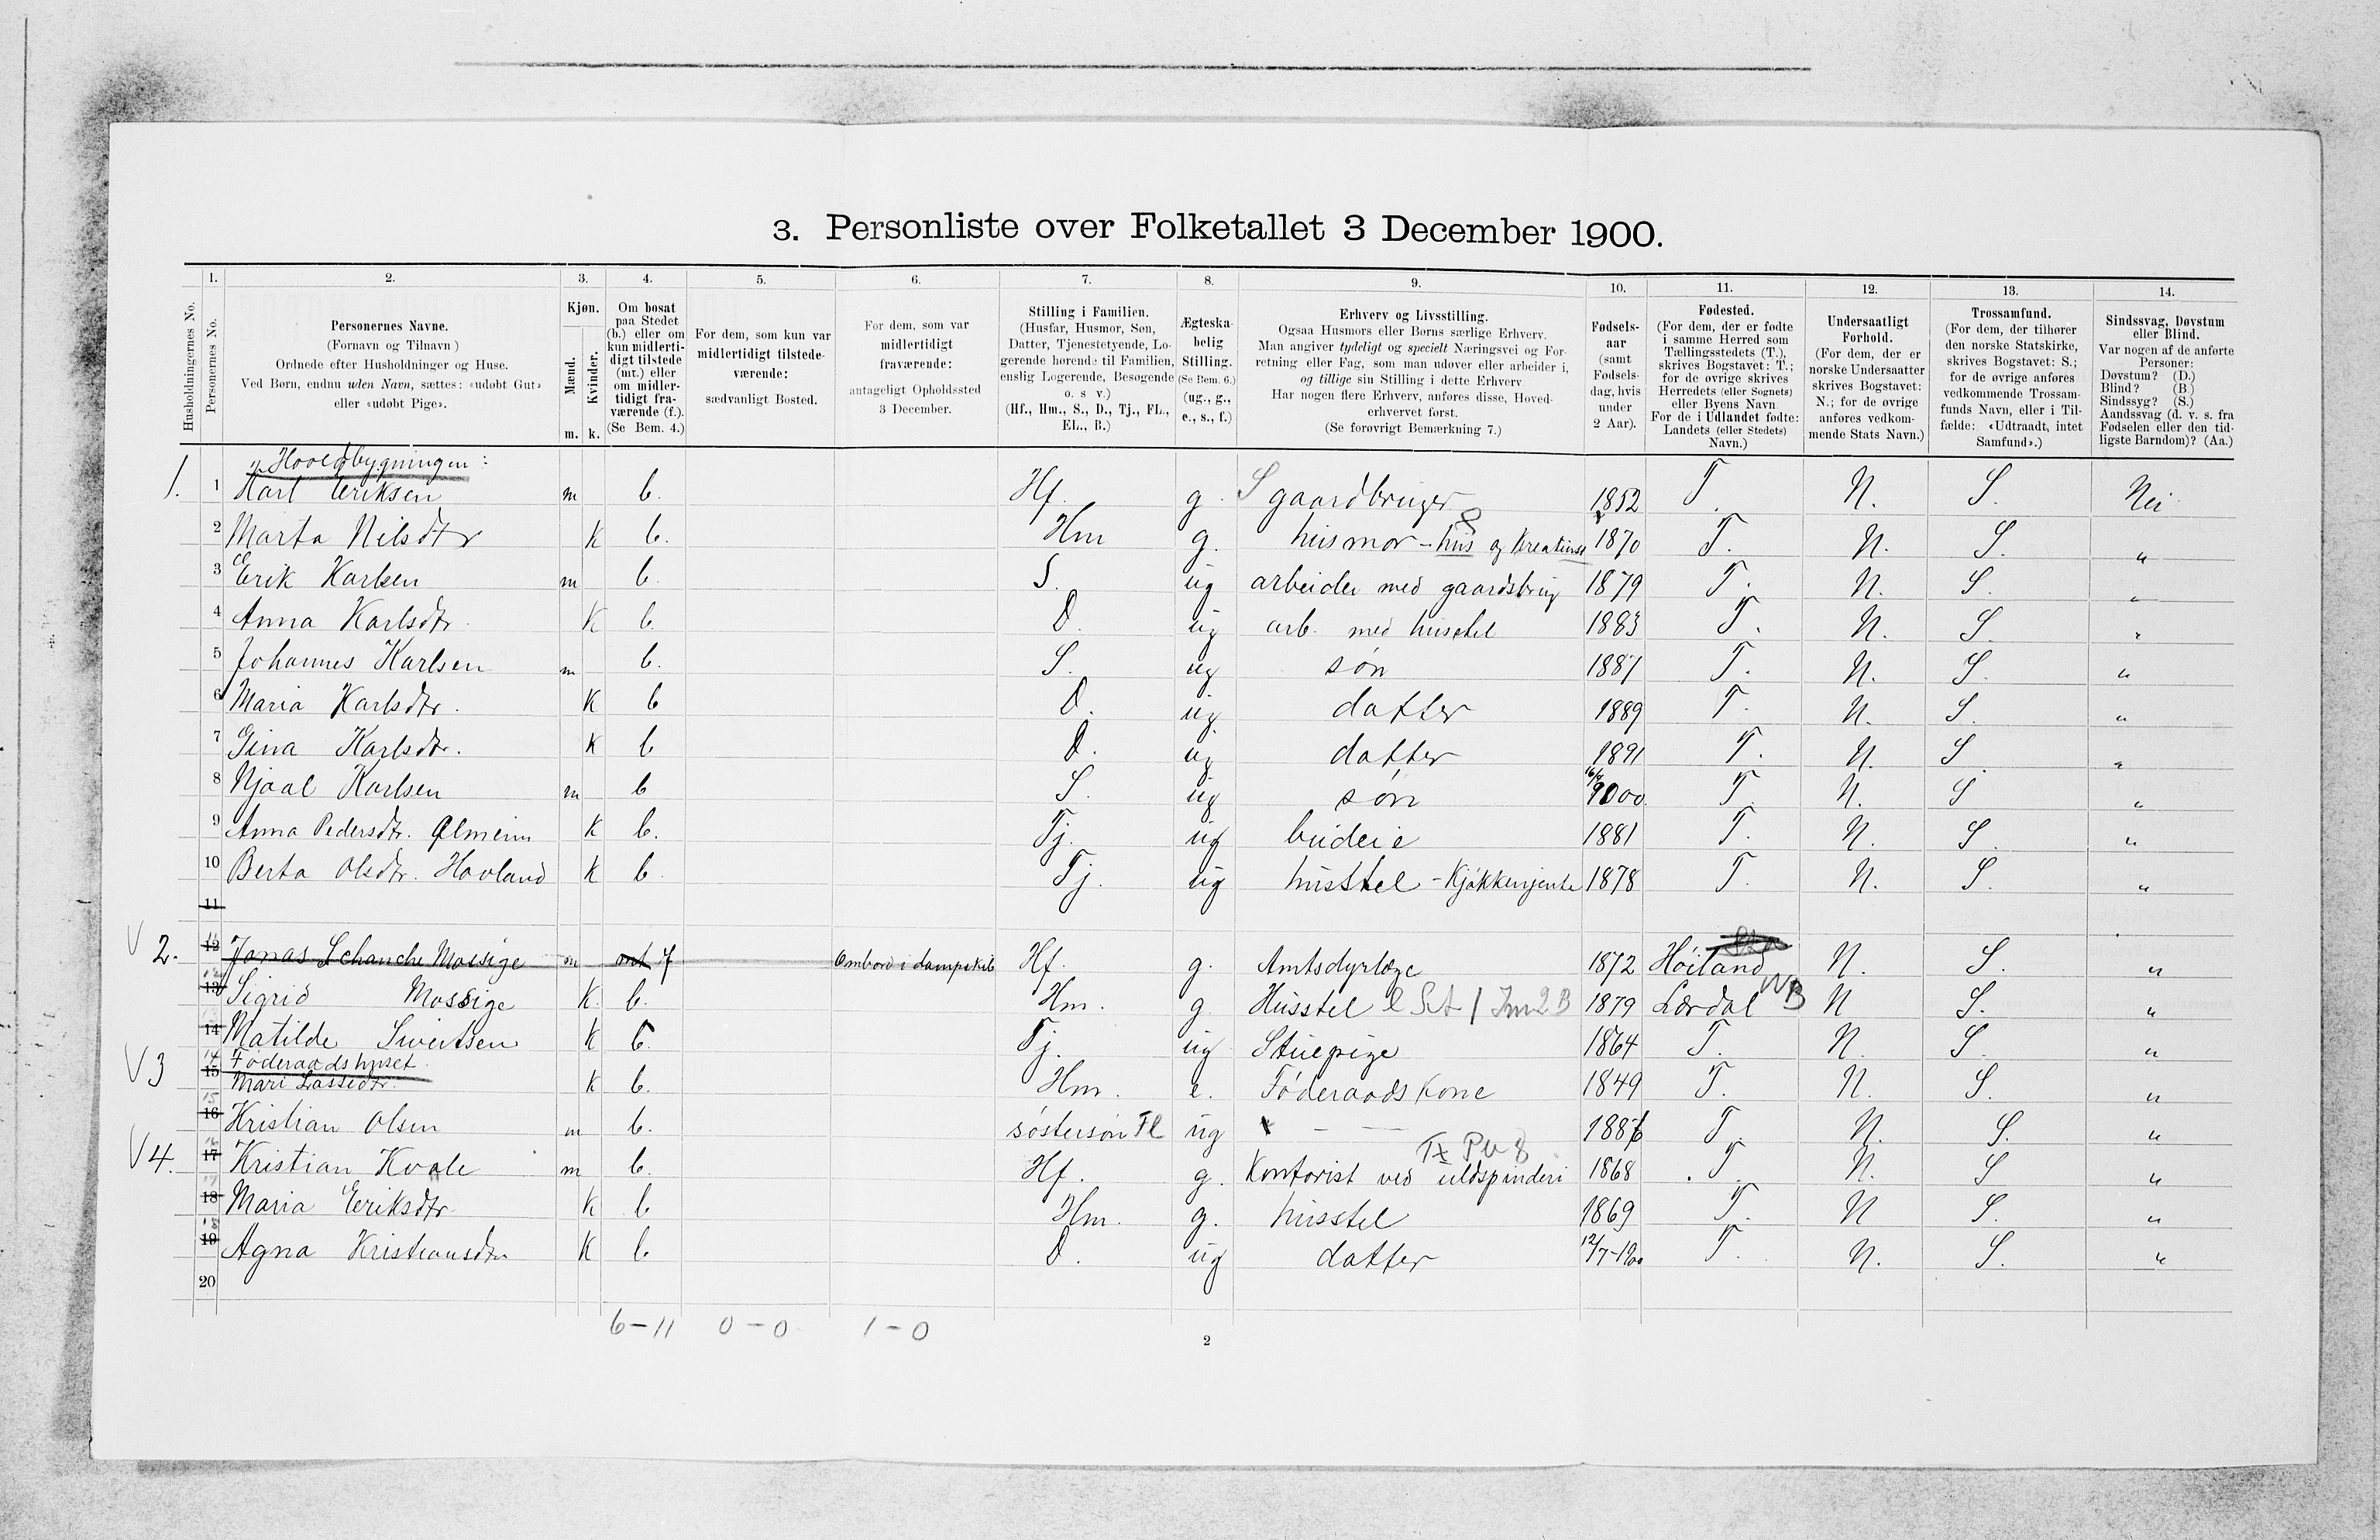 3. Personliste over Folketallet 3 December 1900.
Husholdningernes No.
1. Personernes No.
2. Personernes Navne.
(Fornavn og Tilnavn )
Ordnede efter Husholdninger og Huse.
Ved Børn, endnu uden Navn, sættes: «udøbt Gut»
eller «udøbt Pige».
3. Kjøn.
Mænd. Kvinder.
m. k.
4. Om bosat
paa Stedet
(b.) eller om
kun midlerti-
digt tilstede
(mt.) eller
om midler-
tidigt fra-
værende (f.).
(Se Bem. 4.)
5. For dem, som kun var
midlertidigt tilstede-
værende:
sædvanligt Bosted.
6. For dem, som var
midlertidigt
fraværende:
antageligt Opholdssted
3 December.
7. Stilling i Familien.
(Husfar, Husmor, Søn,
Datter, Tjenestetyende, Lo-
gerende hørende til Familien,
enslig Logerende, Besøgende
o. s v.)
(Hf., Hm., S., D., Tj., FL.,
EL., B.)
8. Ægteska-
belig
Stilling.
(Se Bem. 6.)
(ug., g.,
e., s., f.)
9. Erhverv og Livsstilling.
Ogsaa Husmors eller Børns særlige Erhverv.
Man angiver tydeligt og specielt Næringsvei og For-
retning eller Fag, som man udøver eller arbeider i,
og tillige sin Stilling i dette Erhverv
Har nogen flere Erhverv, anføres disse, Hoved-
erhvervet først.
(Se forøvrigt Bemærkning 7.)
10. Fødsels-
aar
(samt
Fødsels-
dag, hvis
under
2 Aar).
11. Fødested.
(For dem, der er fødte
i samme Herred som
Tællingsstedets (T.),
skrives Bogstavet: T.;
for de øvrige skrives
Herredets (eller Sognets)
eller Byens Navn
For de i Udlandet fødte:
Landets (eller Stedets)
Navn.)
12. Undersaatligt
Forhold.
(For dem, der er
norske Undersaatter
skrives Bogstavet:
N.; for de øvrige
anføres vedkom-
mende Stats Navn.)
13. Trossamfund.
(For dem, der tilhører
den norske Statskirke,
skrives Bogstavet: S.;
for de øvrige anføres
vedkommende Trossam-
funds Navn, eller i Til-
fælde: «Udtraadt, intet
Samfund».)
14. Sindssvag, Døvstum
eller Blind.
Var nogen af de anførte
Personer:
Døvstum? (D.)
Blind? (B )
Sindssyg? (S.)
Aandssvag (d. v. s. fra
Fødselen eller den tid-
ligste Barndom)? (Aa.)
Hovedbygningen:
1. 1 Karl Eriksen m b. Hf. g. S gaardbruger 1852 T. N. S. Nei
2 Marta Nilsdtr K b. Hm g. husmor - hus og Kreaturst 1870 T. N. S. "
3 Erik Karlsen m b. S. ug arbeider med gaardsbrug 1879 T. N. S. "
4 Anna Karlsdtr. K b. D. ug arb. med husstel 1883 T. N. S. "
5 Johannes Karlsen m b. S. ug søn 1887 T. N. S. "
6 Maria Karlsdtr. K b D. ug. datter 1889 T. N. S. "
7 Gina Karlsdtr. K b D. ug datter 1891 T. N. S "
8 Njaal Karlsen m b S. ug søn 1900 T. N. S "
9 Anna Pedersdtr. Olmeim K b. Tj. ug budeie 1881 T. N. S. "
10 Berta Olsdtr. Hovland K b. Tj. ug husstel - Kjøkkenjente 1878 T. N. S. "
11
V 2. 12 Jonas Schanche Mossige m f Ombord i dampskib Hf. g. Amtsdyrlæge 1872 Høiland N. S. "
13 Sigrid Mossige K. b. Hm. g. Husstel 1879 Lærdal NB N S. "
14 Matilde Sivertsen K b. Tj. ug Stuepige 1864 T. N. S. "
Føderaadshuset
V 3 15 Mari Lassedtr. K b. Hm. e. Føderaadskone 1849 T. N. S. "
16 Kristian Olsen m b. søstersøn Fl ug - — 1886 T. N. S. "
V 4. 17 Kristian Kvale m b. Hf. g. Kontorist ved uldspinderi 1868 T. N. S "
18 Maria Eriksdtr K b Hm. g. husstel 1869 T. N S. "
19 Agna Kristiansdtr. K b. D. ug datter 12/7-1900 T. N. S. "
20
6-11 0-0 1-0
2